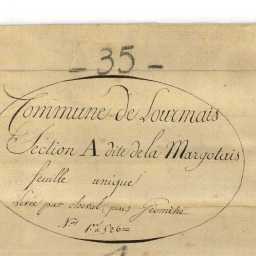 - 35 -
Commune de Lourmais
Section A dite de la Margotais
feuille unique
Levée par Géomètre